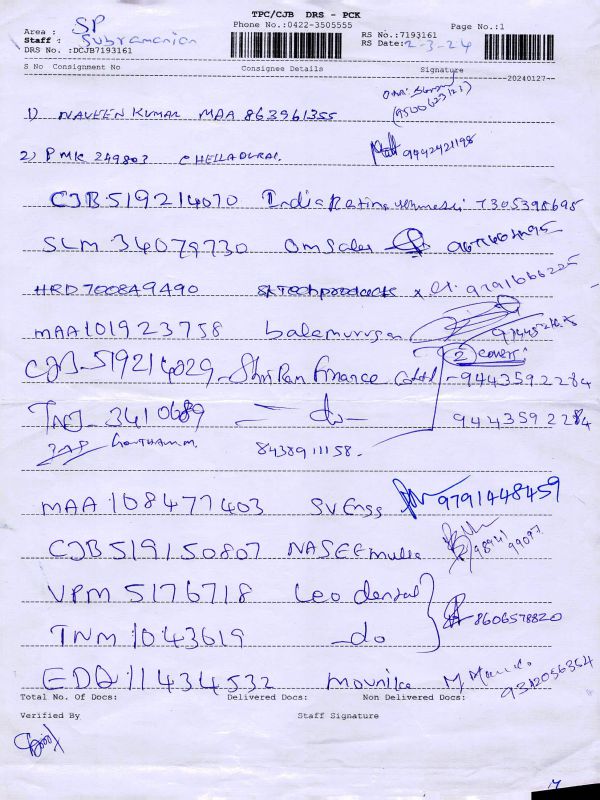 TPC/CJB DRS - PCK
Area : SP Phone No.:0422-3505555 Page No.:1
Staff : Subramanian RS No.:7193161
DRS No. :DCJB7193161 RS Date: 2-3-24
S No Consignment No Consignee Details Signature
20240127
(9500623121)
1) NAVEEN KUMAR MAA 863961355
2) PMK 249803 CHELLADURAI. 9442421198
CJB 519214070 India Rating 7305398695
SLM 34079730 Om Sales
HRD 700849490 SKTech products 9791666225
MAA 101923758 balamurugan
2 covers
CJB 519214029 Shri Ram Finance 9443592284
TNJ 3410689 do 9443592284
8438911158.
MAA 108477403 SV Engg 9791448459
CJB 519150807 NASEEmulla 98941 99097
VPM 5176718 Leo dental
8606578820
TNM 1043619 do
EDQ 11434532 Mounika 9342056354
Total No. Of Docs: Delivered Docs: Non Delivered Docs:
Verified By Staff Signature